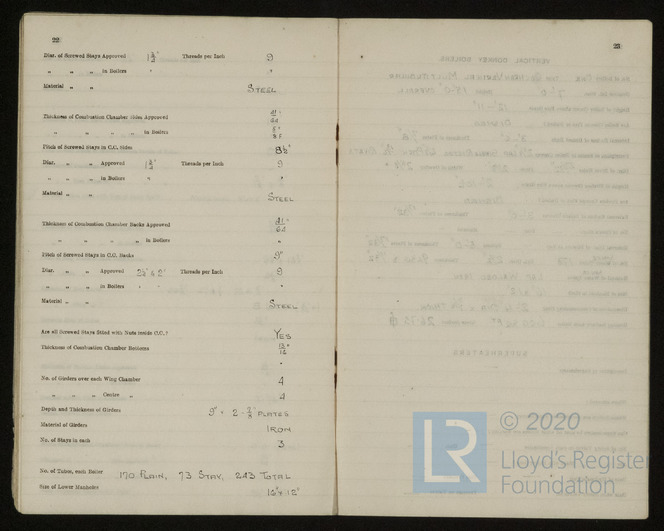 22
Diar. of Screwed Stays Approved 1¾" Threads per Inch 9
" " " in Boilers " "
Material " " STEEL
Thickness of Combustion Chamber Sides Approved
" " " " in Boilers
Pitch of Screwed Stays in C.C. Sides 8½"
Diar. " " Approved Threads per Inch 9
" " " in Boilers " "
Material " " STEEL
Thickness of Combustion Chamber Backs Approved 21/32"
" " " " in Boilers "
Pitch of Screwed Stays in C.C. Backs 9"
Diar. " " Approved & 2" Threads per Inch 9
" " " in Boilers " "
Material " " STEEL
Are all Screwed Stays fitted with Nuts inside C.C.? YES
Thickness of Combustion Chamber Bottoms 13/16"
"
No. of Girders over each Wing Chamber 4
" " " Centre " 4
Depth and Thickness of Girders 9" 2 - PLATES
Material of Girders IRON
No. of Stays in each 3
No. of Tubes, each Boiler 170 PLAIN, 73 STAY, 243 TOTAL
Size of Lower Manholes 16" x 12"
23
LR
© 2020
Lloyd's Register
Foundation